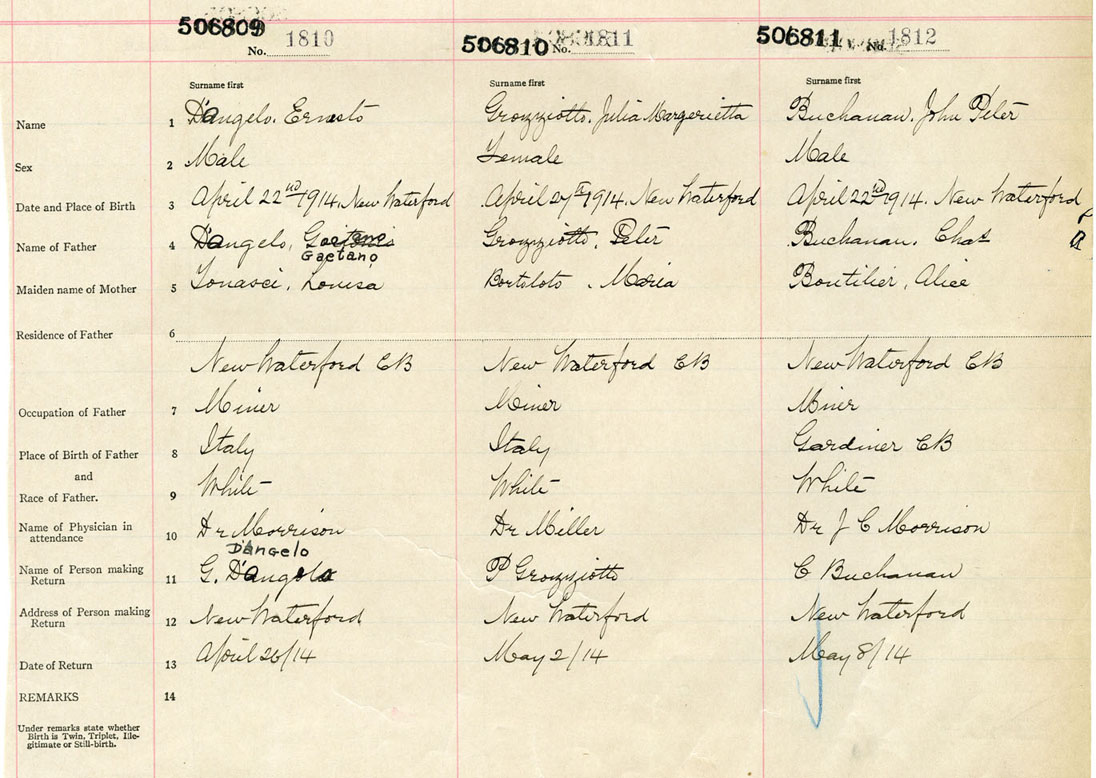 506809 506810 506811
No. 1810 No. 1811 No. 1812
Surname first Surname first Surname first
Name 1 D'angelo, Ernesto Grozziotto, Julia Margerietta Buchanan, John Peter
Sex 2 Male Female Male
Date and Place of Birth 3 April 22nd 1914, New Waterford April 27th 1914, New Waterford April 22nd 1914, New Waterford
Name of Father 4 D'angelo, Grozziotto, Peter Buchanan, Chas
Gaetano
Maiden name of Mother 5 Louisa Bortoloto, Maria Boutilier, Alice
Residence of Father 6
New Waterford CB New Waterford CB New Waterford CB
Occupation of Father 7 Miner Miner Miner
Place of Birth of Father 8 Italy Italy Gardiner CB
and
Race of Father. 9 White White White
Name of Physician in
attendance 10 Dr Morrison Dr Miller Dr J C Morrison
D'Angelo
Name of Person making
Return 11 G. D'angelo P Grozziotto C Buchanan
Address of Person making
Return 12 New Waterford New Waterford New Waterford
Date of Return 13 April 26/14 May 2/14 May 8/14
REMARKS 14
Under remarks state whether
Birth is Twin, Triplet, Ille-
gitimate or Still-birth.